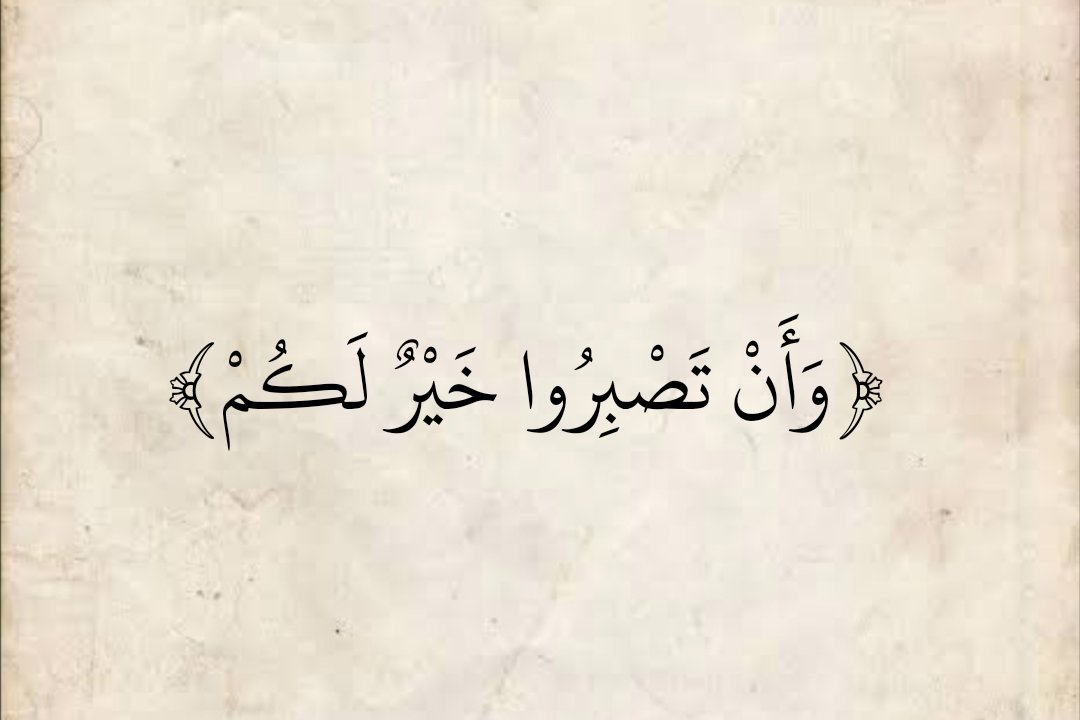 ﴿وَأَنْ تَصْبِرُوا خَيْرٌ لَكُمْ﴾